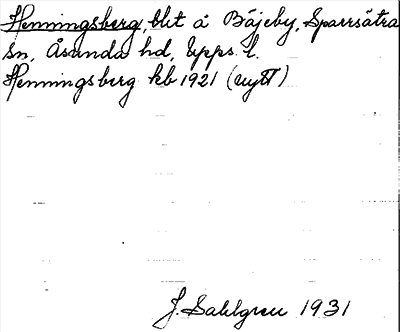 Henningsberg, bbt å Bäjeby, Sparrsätra
sn, Åsunda hd, Upps. l.
Henningsberg kb 1921 (nytt)
J. Sahlgren 1931